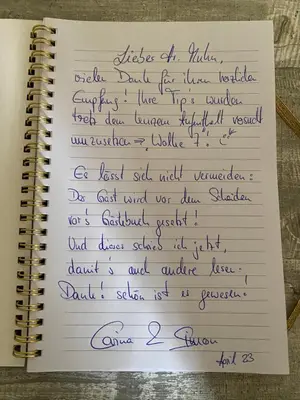 Lieber Hr. Kuhn,
vielen Dank für ihren herzlichen
Empfang! Ihre Tip's wurden
trotz dem kurzen Aufenthalt versucht
umzusehen → Wolke 7!
Es lässt sich nicht vermeiden:
Der Gast wird vor dem Scheiden
vor's Gästebuch gesetzt!
Und dieses schrieb ich jetzt,
damit's auch andere lesen -
Danke! schön ist es gewesen!
Carina & Simon
April 23